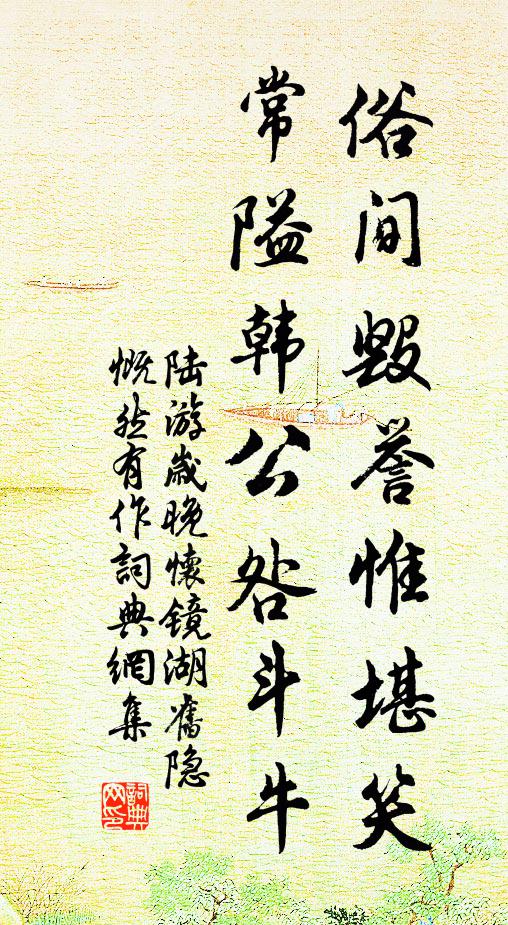 俗间毁誉惟堪笑
常隘韩公咎斗牛
陆游岁晚怀镜湖旧隐
慨然有作词典网集
詞典
网印